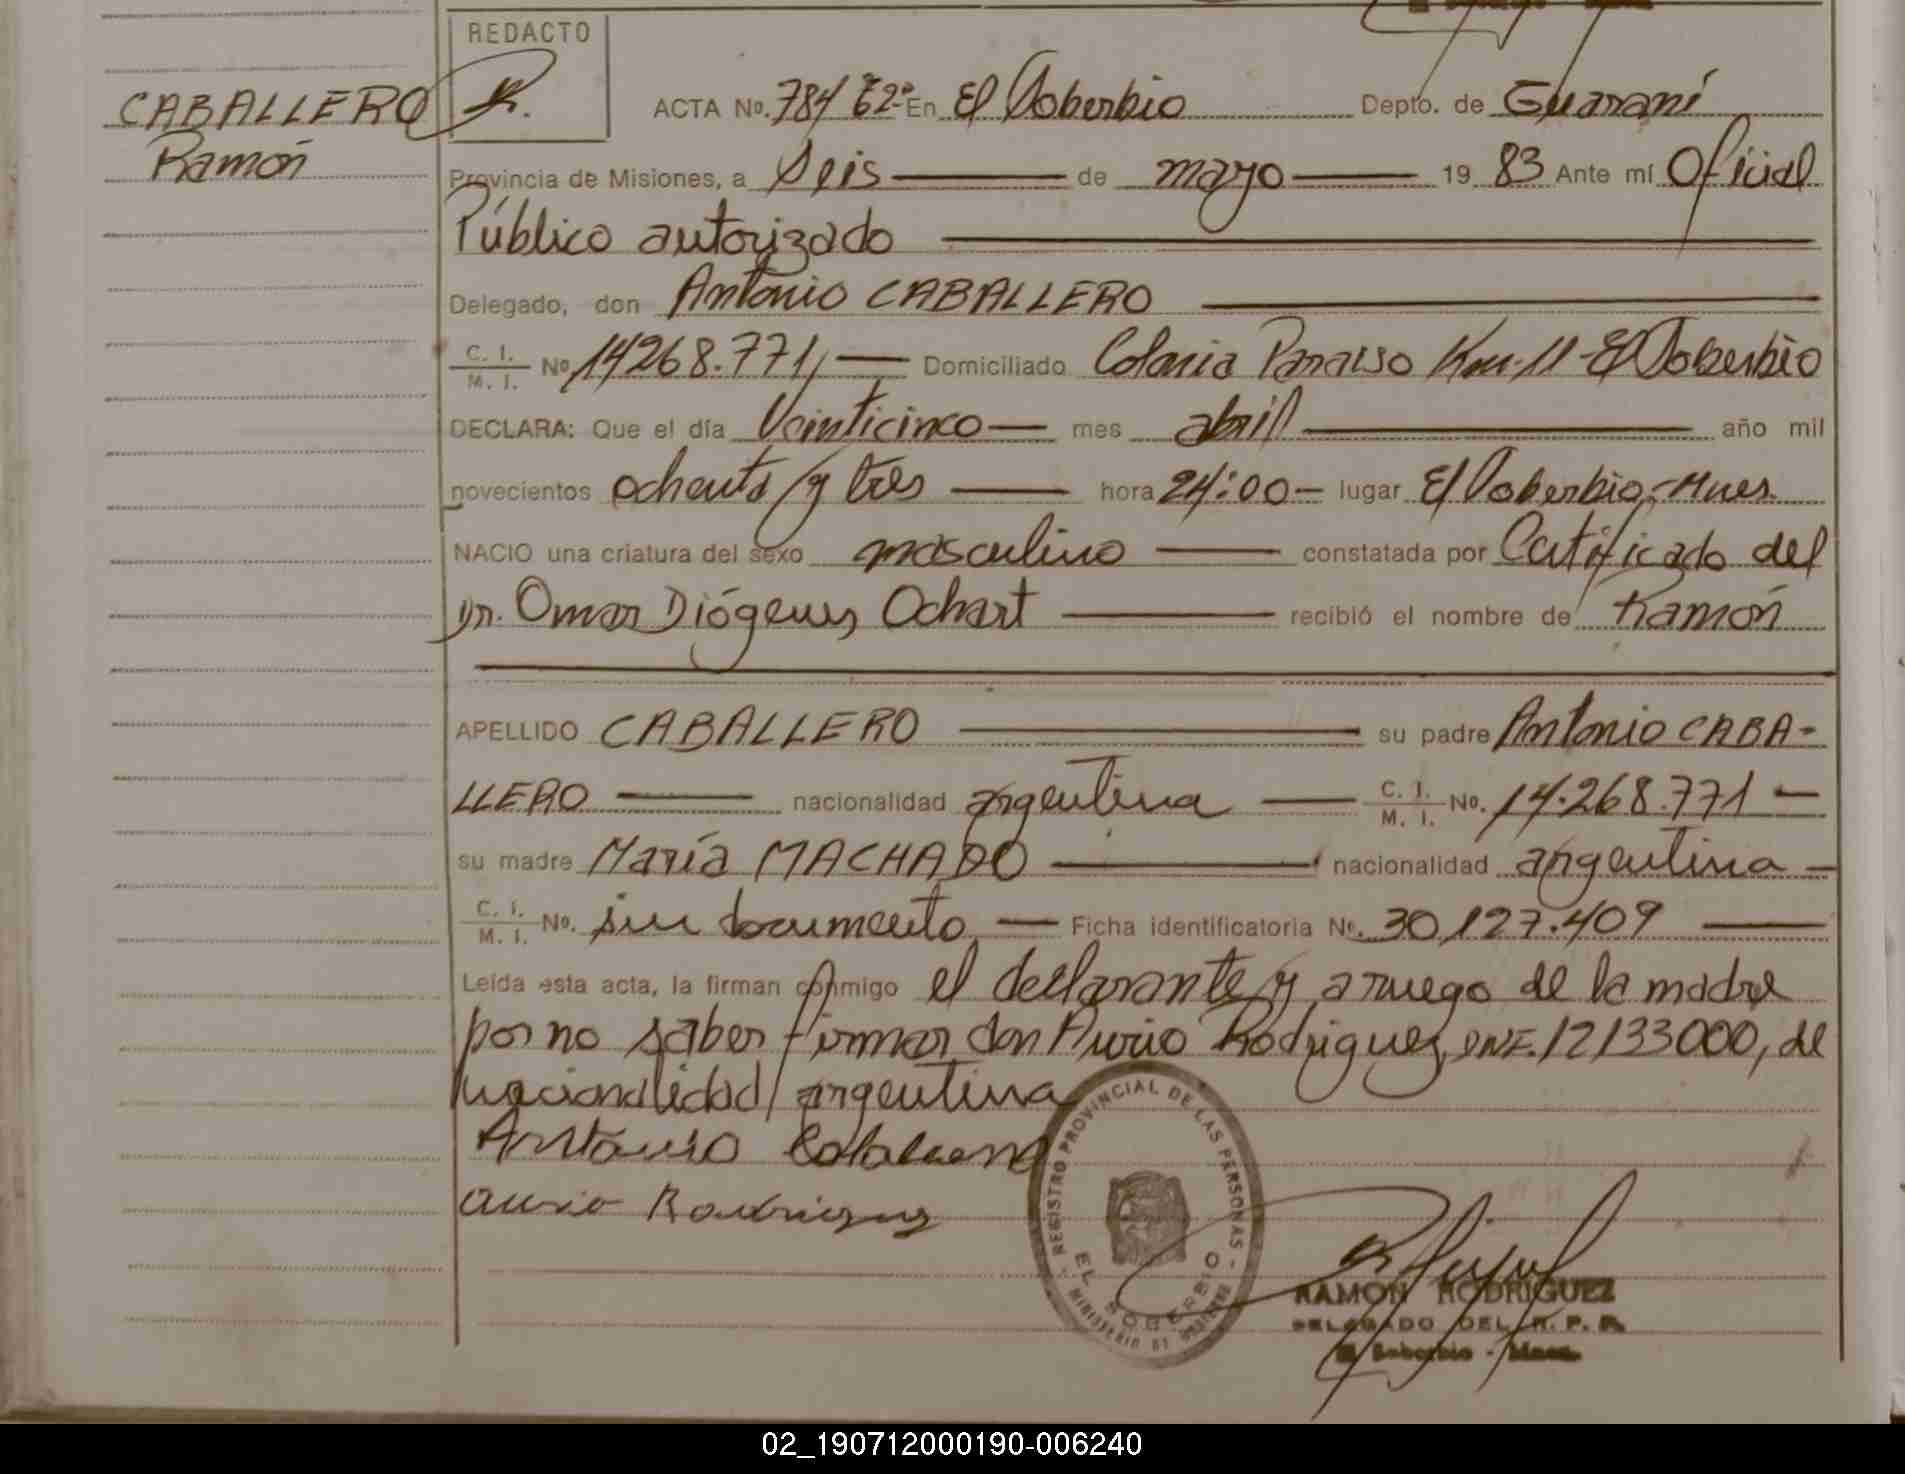 REDACTO
CABALLERO
Ramón
ACTA No. 784 Tº2º En El Soberbio Depto. de Guaraní
Provincia de Misiones, a Seis de mayo 19 83 Ante mí Oficial
Público autorizado
Delegado, don Antonio CABALLERO
C. I. M. I. Nº 14268.771, Domiciliado Colonia Paraiso Km. 11 - El Soberbio
DECLARA: Que el día Veinticinco mes abril año mil
novecientos ochenta y tres hora 24:00 lugar El Soberbio, Mnes.
NACIO una criatura del sexo masculino constatada por Certificado del
Dr. Omar Diógenes Ochart recibió el nombre de Ramón
APELLIDO CABALLERO su padre Antonio CABA-
LLERO nacionalidad argentina C. I. M. I. No. 14.268.771
su madre María MACHADO nacionalidad argentina
C. I. M. I. No. sin documento Ficha identificatoria Nº. 30.127.409
Leída esta acta, la firman conmigo el declarante y a ruego de la madre
por no saber firmar don Aurio Rodriguez, DNI. 12133000, de
nacionalidad argentina
Antonio Caballero
Aurio Rodriguez
REGISTRO PROVINCIAL DE LAS PERSONAS
EL SOBERBIO
MINISTERIO DE GOBIERNO
RAMON RODRIGUEZ
DELEGADO DEL R. P. P.
El Soberbio - Mnes.
02_190712000190-006240